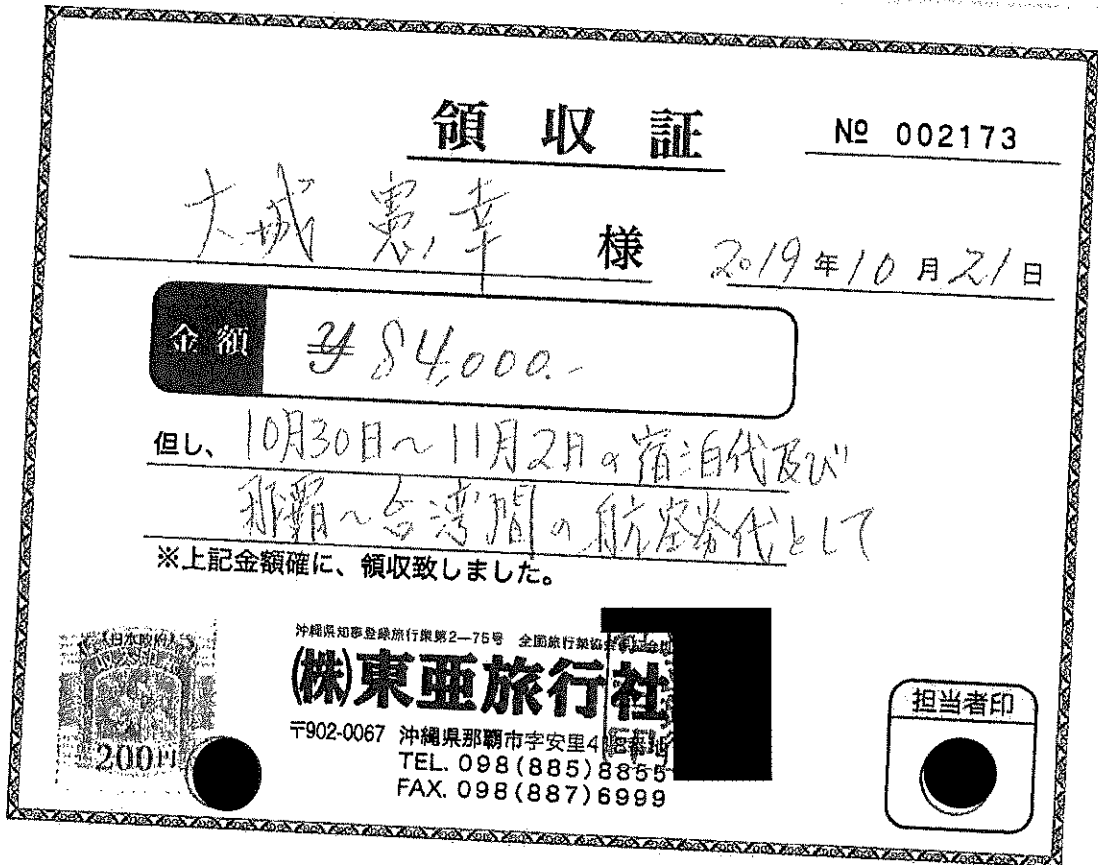 領収証
№ 002173
大城 憲幸 様
2019年10月21日
金額 ¥84,000.-
但し、10月30日～11月2日の宿泊代及び
那覇～台湾間の航空券代として
※上記金額確に、領収致しました。
日本政府
200円
沖縄県知事登録旅行業第2―75号 全国旅行業協会
(株)東亜旅行社
〒902-0067 沖縄県那覇市字安里4
TEL. 098(885)8855
FAX. 098(887)6999
担当者印